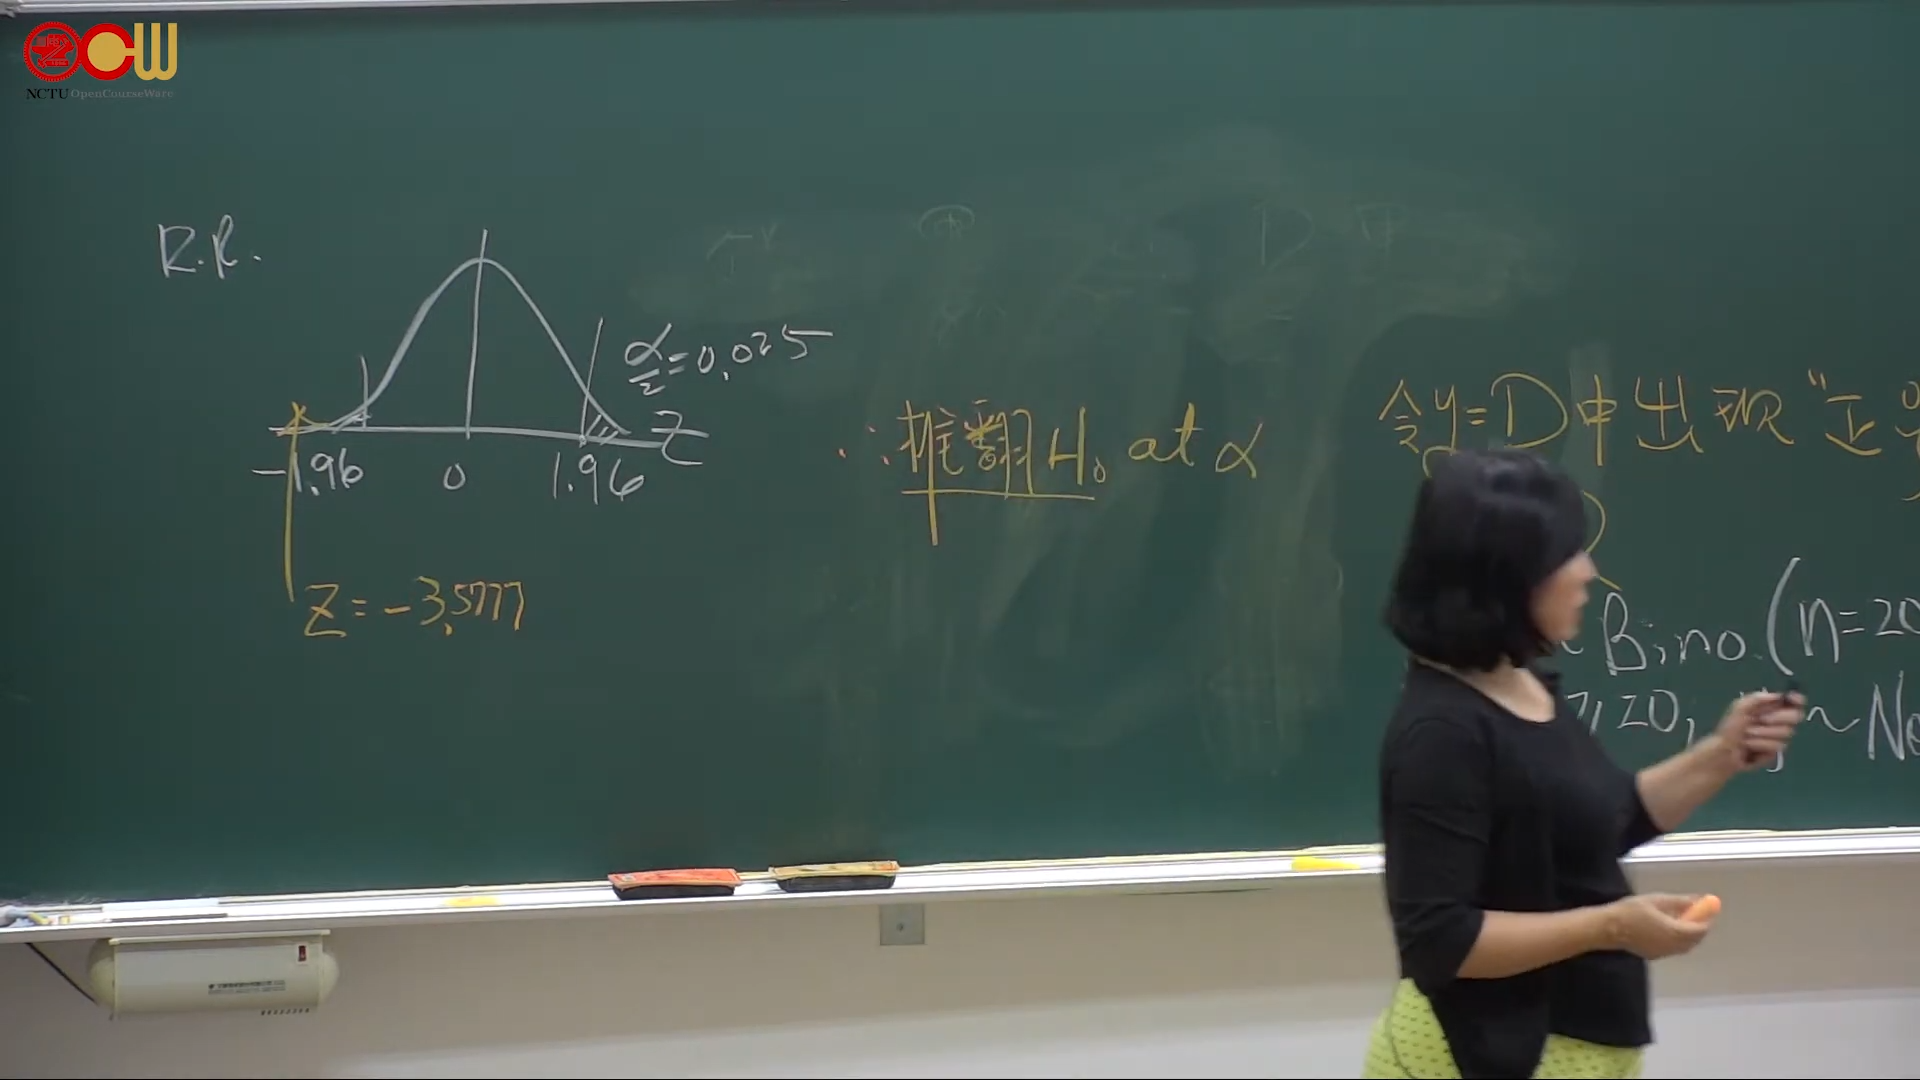 NCTU OpenCourseWare
R.R.
α/2 = 0.025
Z
-1.96 0 1.96
Z = -3.5777
∴ 推翻 H₀ at α
令 y = D 中 出 现 "正
Bino (n=20
≥ 20,
~ No